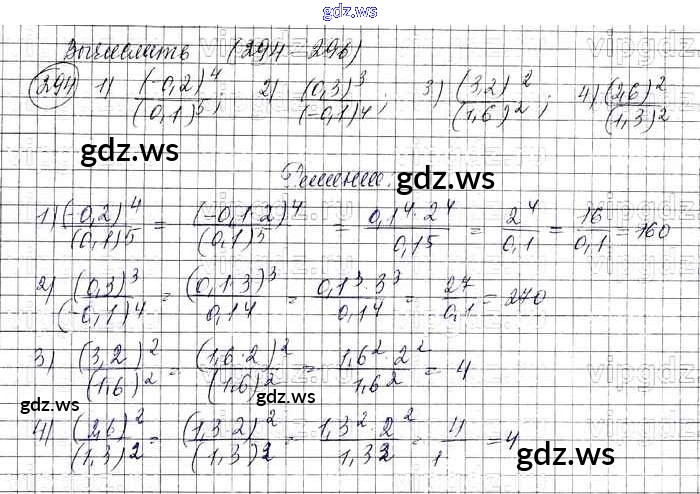 gdz.ws
Вычислить (294-296)
294 1) (-0,2)^4/(0,1)^5; 2) (0,3)^3/(-0,1)^4; 3) (3,2)^2/(1,6)^2; 4) (2,6)^2/(1,3)^2
gdz.ws
Решение.
gdz.ws
1) (-0,2)^4/(0,1)^5 = (-0,1·2)^4/(0,1)^5 = 0,1^4·2^4/0,1^5 = 2^4/0,1 = 16/0,1 = 160
2) (0,3)^3/(-0,1)^4 = (0,1·3)^3/0,1^4 = 0,1^3·3^3/0,1^4 = 27/0,1 = 270
3) (3,2)^2/(1,6)^2 = (1,6·2)^2/(1,6)^2 = 1,6^2·2^2/1,6^2 = 4
gdz.ws
gdz.ws
4) (2,6)^2/(1,3)^2 = (1,3·2)^2/(1,3)^2 = 1,3^2·2^2/1,3^2 = 4/1 = 4
gdz.ws